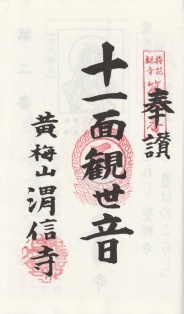 奉讃
十一面観世音
黄梅山 渭信寺